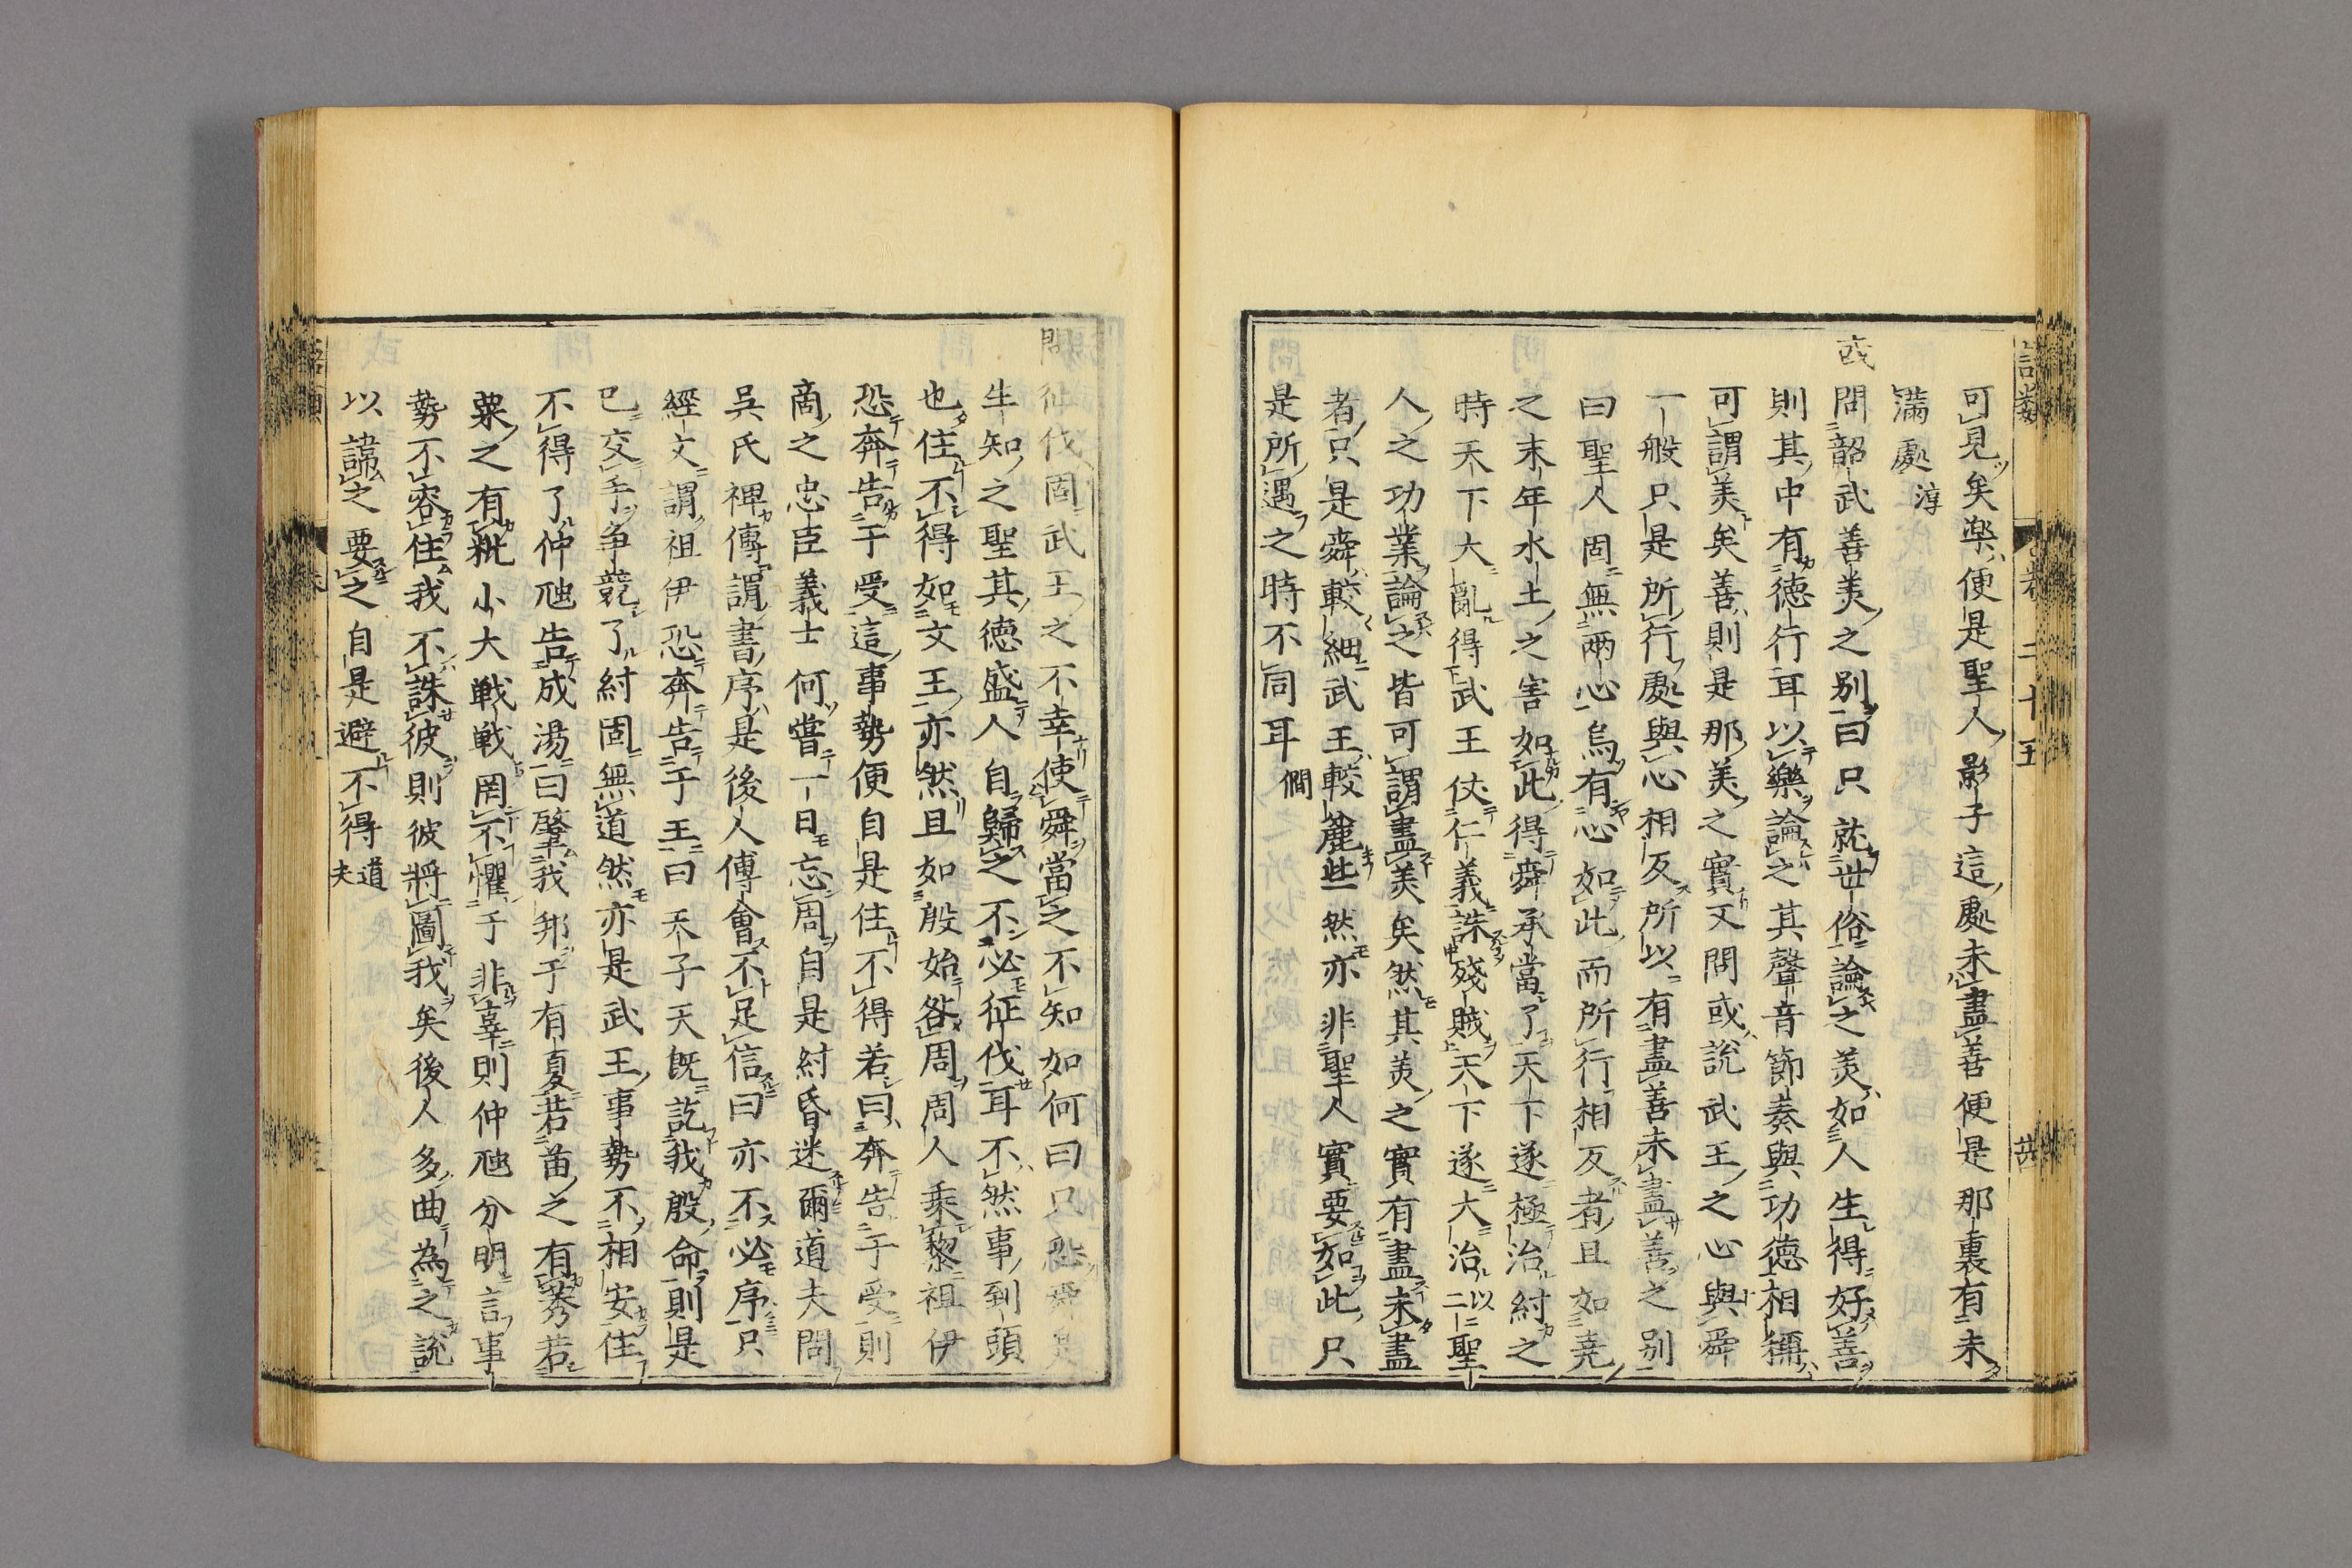 可見矣樂便是聖人影子這處未盡善便是那裏有未
滿處淳
或問韶武善美之别曰只就世俗論之美如人生得好善
則其中有德行耳以樂論之其聲音節奏與功德相稱
可謂美矣善則是那美之實又問或說武王之心與舜
一般只是所行處與心相反所以有盡善未盡善之别
曰聖人固無兩心烏有心如此而所行相反者且如堯
之末年水土之害如此得舜承當了天下遂極治紂之
時天下大亂得武王仗仁義誅殘賊天下遂大治以二聖
人之功業論之皆可謂盡美矣然其美之實有盡未盡
者只是舜較細武王較麄些然亦非聖人實要如此只
是所遇之時不同耳僩
問征伐固武王之不幸使舜當之不知如何曰只恐舜是
生知之聖其德盛人自歸之不必征伐耳不然事到頭
也住不得如文王亦然且如殷始咎周周人乘黎祖伊
恐奔告于受這事勢便自是住不得若曰奔告于受則
商之忠臣義士何嘗一日忘周自是紂昏迷爾道夫問
吳氏裨傳謂書序是後人傅會不足信曰亦不必序只
經文謂祖伊恐奔告于王曰天子天既訖我殷命則是
已交手争競了紂固無道然亦是武王事勢不相安住
不得了仲虺告成湯曰肇我邦于有夏若苗之有莠若
粟之有秕小大戰戰罔不懼于非辜則仲虺分明言事
勢不容住我不誅彼則彼將圖我矣後人多曲為之說
以諱之要之自是避不得道夫
語類
卷二十五
廿